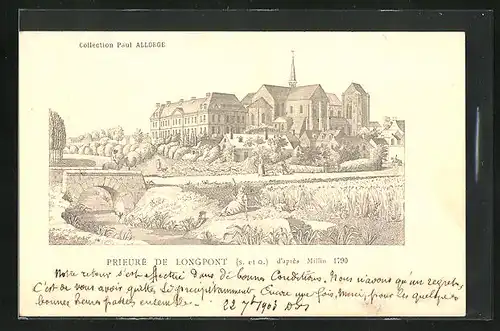 Collection Paul ALLORGE
PRIEURÉ DE LONGPONT (S. et O.) d'après Millin 1790
Notre retour s'est effectué dans de bonnes conditions. Nous n'avons qu'un regret,
C'est de vous avoir quittés si précipitamment. Encore une fois, merci, pour les quelques
bonnes heures passées ensemble.
22 7bre 1903